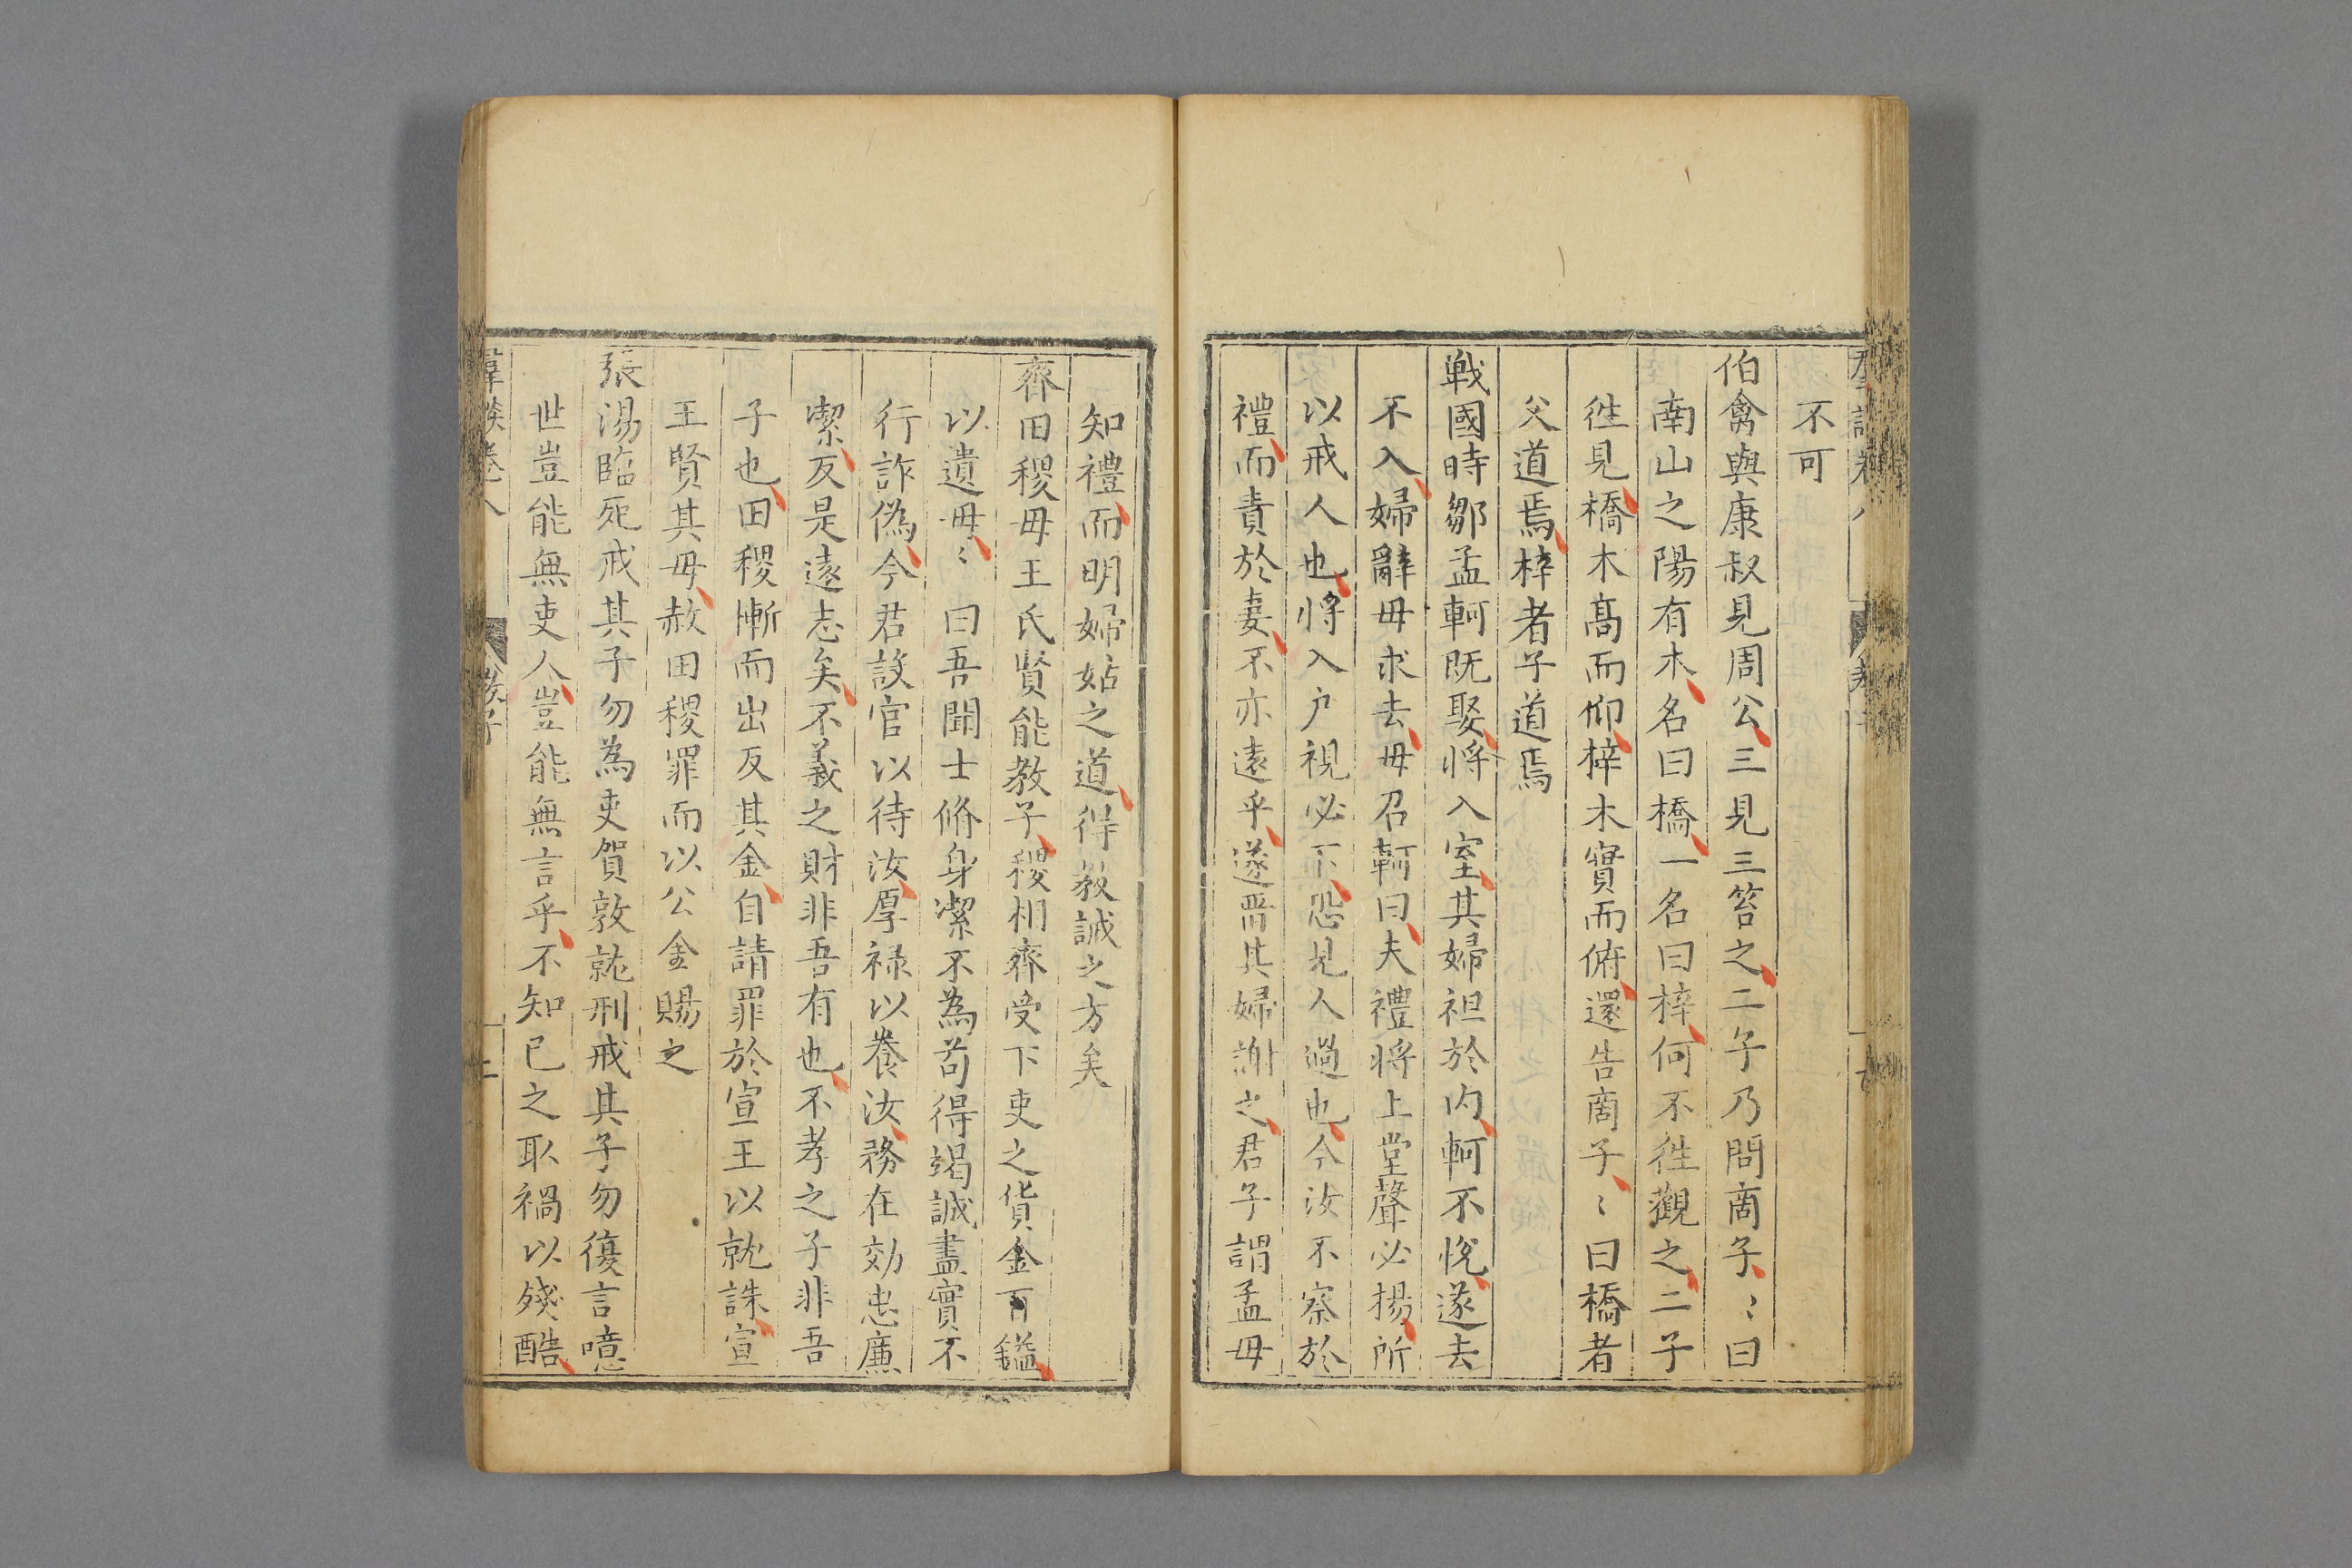 不可
伯禽與康叔見周公三見三笞之二子乃問商子〻曰
南山之陽有木名曰橋一名曰梓何不徃觀之二子
徃見橋木髙而仰梓木實而俯還告商子〻曰橋者
父道焉梓者子道焉
戰國時鄒孟軻既娶將入室其婦袒於内軻不悅遂去
不入婦辭母求去母召軻曰夫禮將上堂聲必揚所
以戒人也將入户視必下恐見人過也今汝不察於
禮而責於妻不亦遠乎遂畱其婦謝之君子謂孟母
知禮而明婦姑之道得教誡之方矣
齊田稷母王氏賢能教子稷相齊受下吏之貨金百鎰
以遺母〻曰吾聞士脩身潔不為苟得竭誠盡實不
行詐偽今君設官以待汝厚祿以養汝務在効忠廉
潔反是遠志矣不義之財非吾有也不孝之子非吾
子也田稷慚而出反其金自請罪於宣王以就誅宣
王賢其母赦田稷罪而以公金賜之
張湯臨死戒其子勿為吏賀敦就刑戒其子勿復言噫
世豈能無吏人豈能無言乎不知已之取禍以殘酷
教子